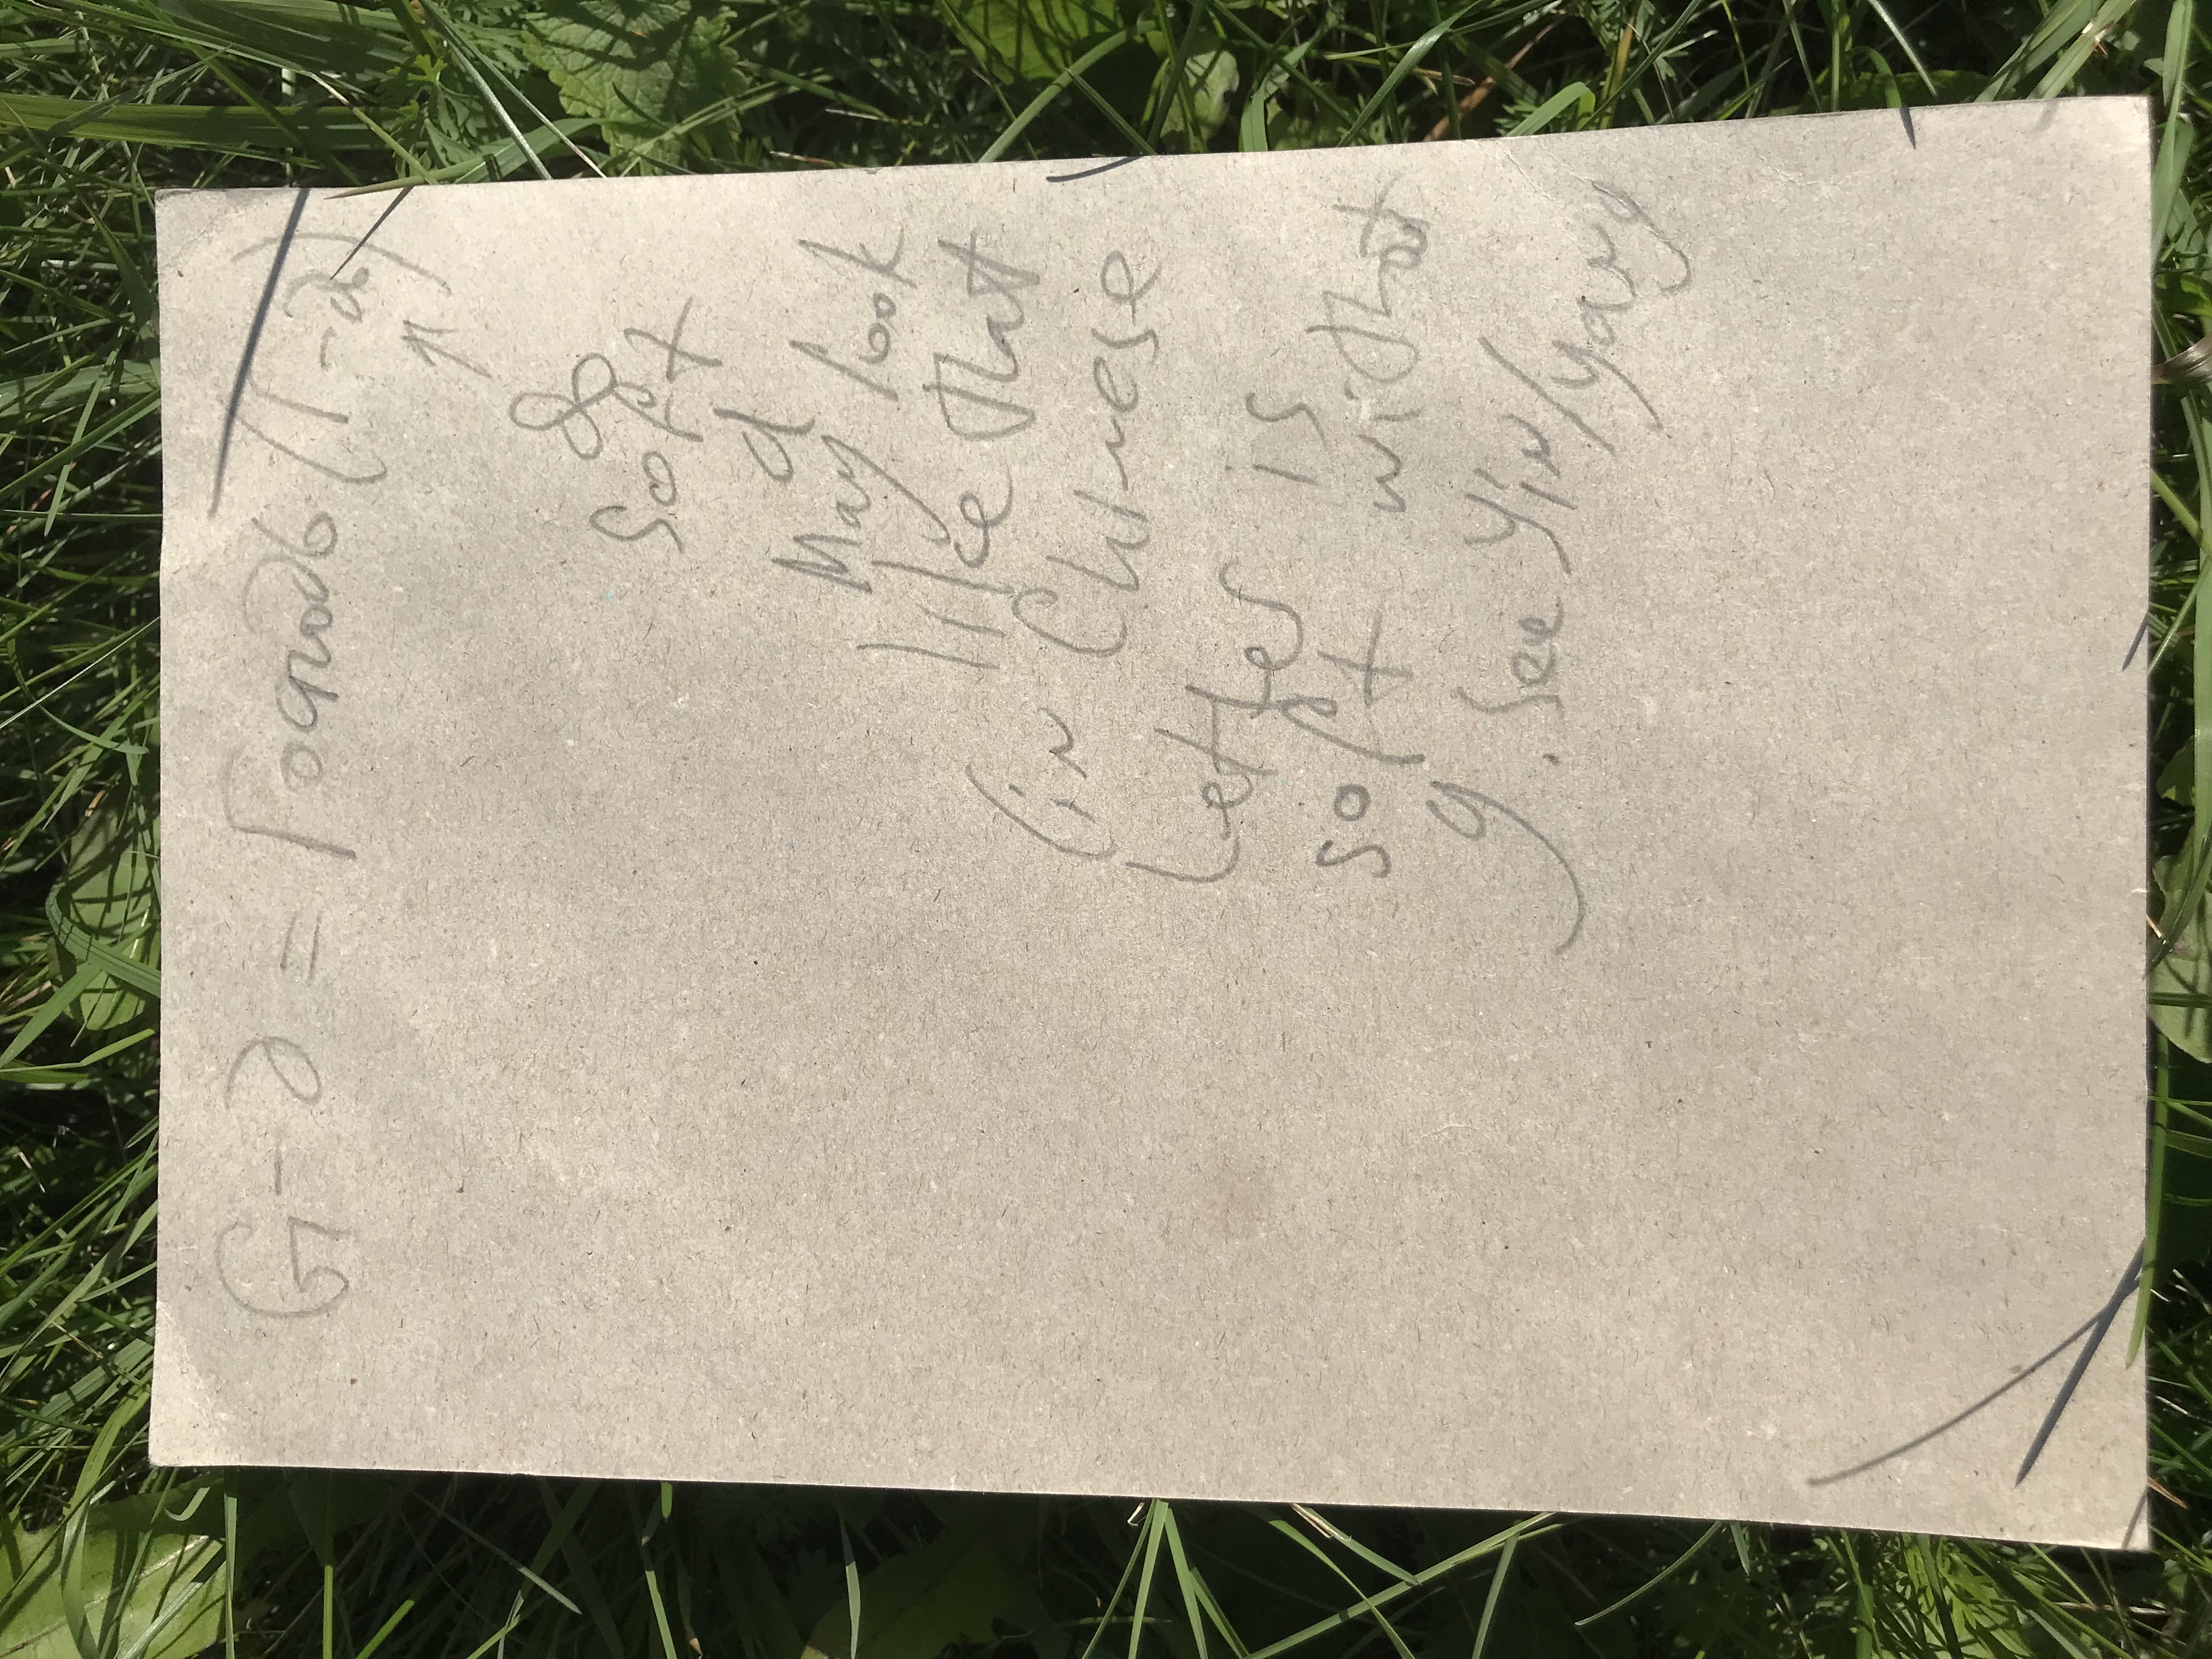 G-д = Господь (Г-дь)
soft
d
May look
like that
(in Chinese
Letter is
soft withat
g. See Yin/yang